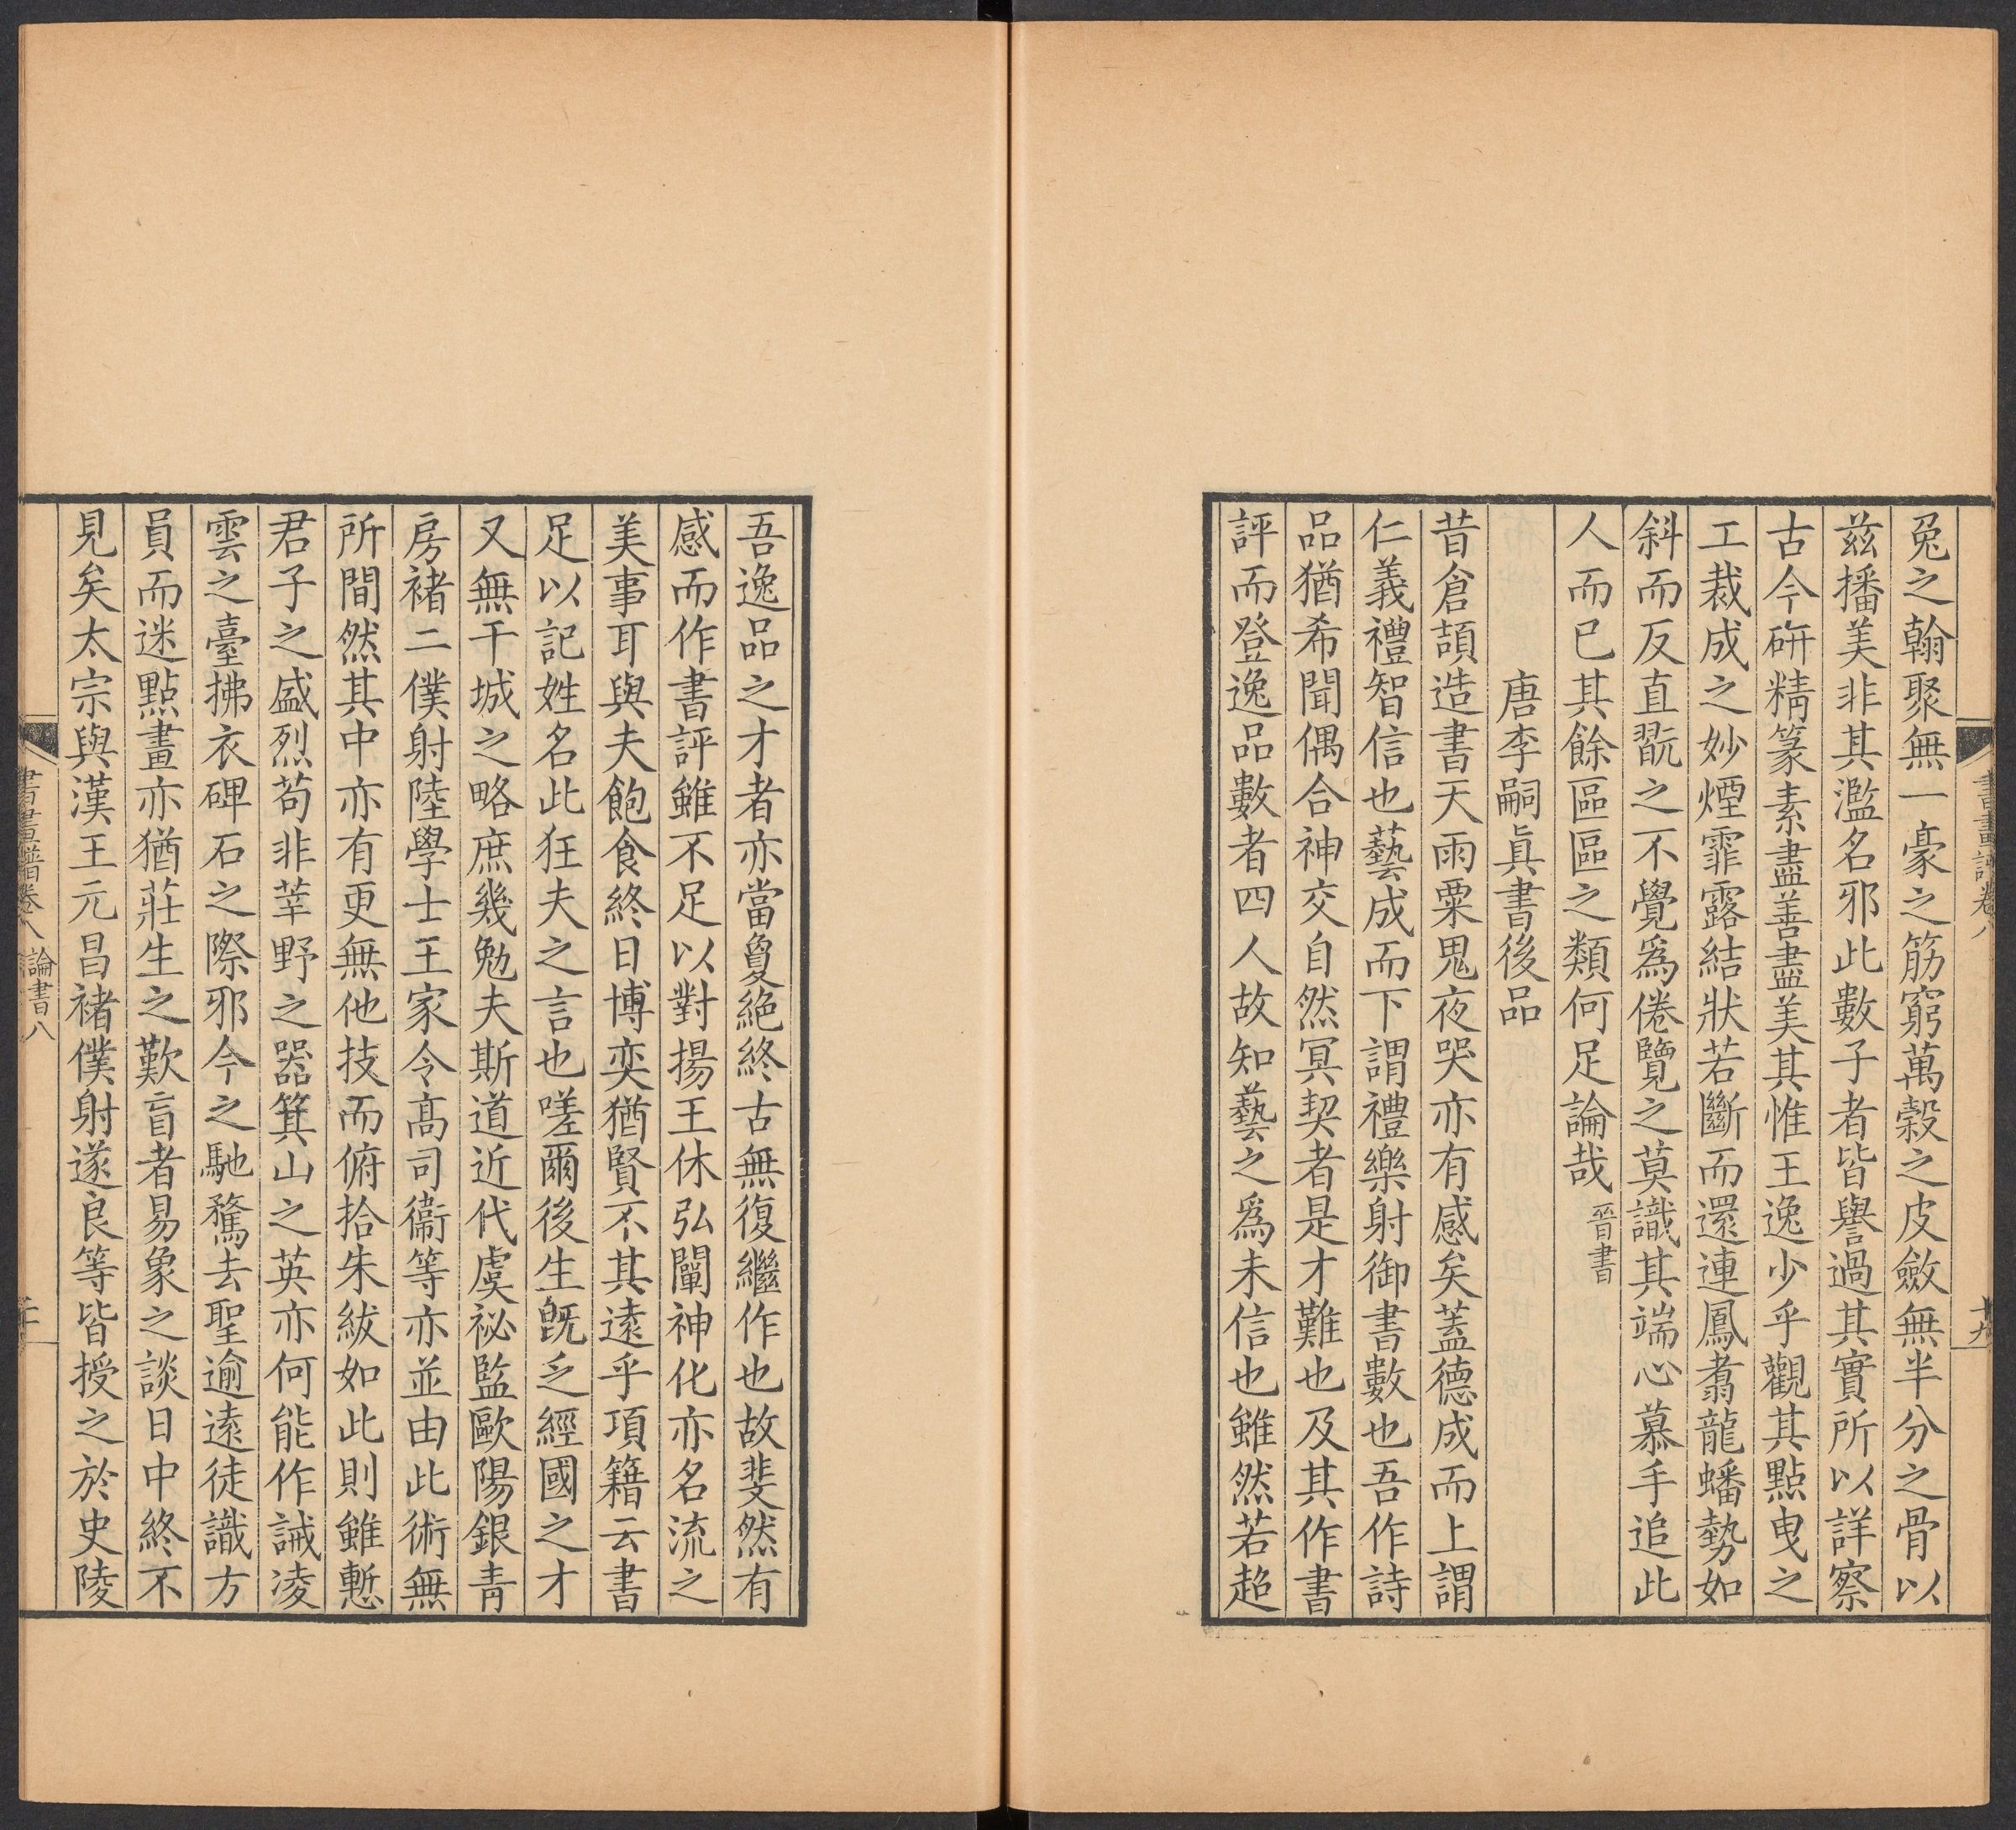 書畫譜卷八
十九
兔之翰聚無一豪之筋窮萬穀之皮斂無半分之骨以
兹播美非其濫名邪此數子者皆譽過其實所以詳察
古今研精篆素盡善盡美其惟王逸少乎觀其點曳之
工裁成之妙煙霏露結狀若斷而還連鳳翥龍蟠勢如
斜而反直翫之不覺爲倦覽之莫識其端心慕手追此
人而已其餘區區之類何足論哉 晉書
唐李嗣眞書後品
昔倉頡造書天雨粟鬼夜哭亦有感矣蓋德成而上謂
仁義禮智信也藝成而下謂禮樂射御書數也吾作詩
品猶希聞偶合神交自然冥契者是才難也及其作書
評而登逸品數者四人故知藝之爲未信也雖然若超
吾逸品之才者亦當夐絶終古無復繼作也故斐然有
感而作書評雖不足以對揚王休弘闡神化亦名流之
美事耳與夫飽食終日博奕猶賢不其遠乎項籍云書
足以記姓名此狂夫之言也嗟爾後生旣乏經國之才
又無干城之略庶幾勉夫斯道近代虞祕監歐陽銀青
房褚二僕射陸學士王家令高司衞等亦並由此術無
所間然其中亦有更無他技而俯拾朱紱如此則雖慙
君子之盛烈苟非莘野之器箕山之英亦何能作誡凌
雲之臺拂衣碑石之際邪今之馳騖去聖逾遠徒識方
員而迷點畫亦猶莊生之歎盲者易象之談日中終不
見矣太宗與漢王元昌褚僕射遂良等皆授之於史陵
書畫譜卷八 論書八